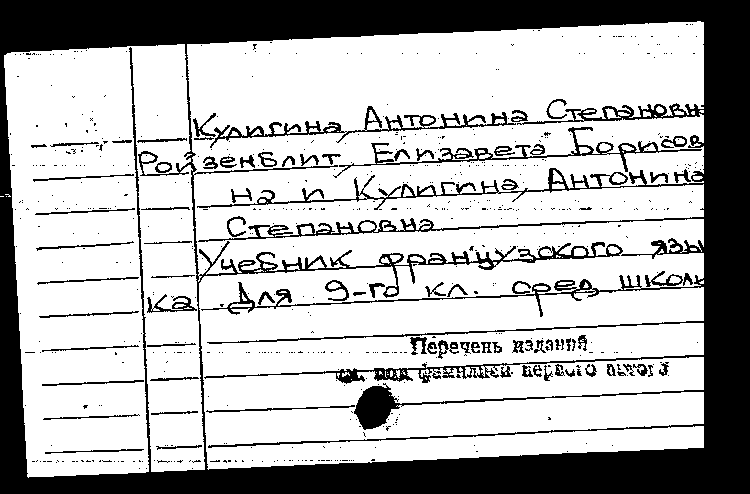 Кулигина, Антонина Степановн
Ройзенблит, Елизавета Борисов
на и Кулигина, Антонина
Степановна
Учебник французского язы
ка. Для 9-го кл. сред. школы
Перечень изданий
см. под фамилией первого автора